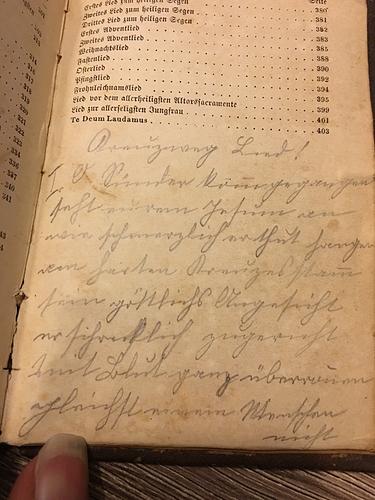 Erstes Lied zum heiligen Segen
Seite
Zweites Lied zum heiligen Segen 380
Drittes Lied zum heiligen Segen 381
Erstes Adventlied 382
Zweites Adventlied 383
Weihnachtslied 385
Fastenlied 388
Osterlied 390
Pfingstlied 392
Frohnleichnamslied 394
Lied vor dem allerheiligsten Altarssacramente 395
Lied zur allerseligsten Jungfrau 399
Te Deum Laudamus 401
403
Kreuzweg Lied!
I O Sünder kom̄ gegangen
seht eurem Jesum an
wie schmerzlich er thut hangen
am harten Kreuzesstam̄
sein göttlichs Angesicht
er schrecklich zugericht
mit Blut ganz überronnen
gleichst einem Menschen
nicht